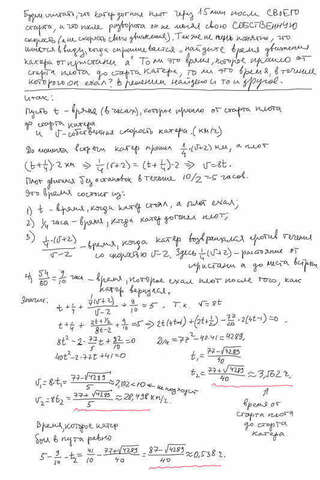 Будем считать, что катер догнал плот через 15 мин после СВОЕГО
старта, а что после разворота он не менял свою СОБСТВЕННУЮ
скорость (а не скорость своего движения). Так же не
имеется в виду, когда спрашивается, найдите время движения
катера от пристани А? То ли это время, которое прошло от
старта плота до старта катера, то ли это время, в течение
которого он ехал? В решении найдено то и другое.
Итак:
Пусть t - время (в часах), которое прошло от старта плота
до старта катера
и v - собственная скорость катера (км/ч)
До момента встречи катер прошел 1/4·(v+2) км, а плот
(t+1/4)·2 км ⇒ 1/4(v+2) = (t+1/4)·2 ⇒ v=8t.
Плот двигался без остановок в течение 10/2=5 часов.
Это время состоит из:
1) t - время, когда катер стоял, а плот ехал,
2) 1/4 часа - время, когда катер догонял плот,
3) 1/4·(v+2)/(v-2) - время, когда катер возвращался против течения
со скоростью v-2. Здесь 1/4(v+2) - расстояние от
пристани А до места встречи
4) 54/60 = 9/10 часа - время, которое ехал плот после того, как
катер вернулся.
t+1/4+ 1/4(v+2)/(v-2) + 9/10 = 5. Т.к. v=8t
8t²-2·77/5 t+82/10=0
40t²-2·77t+41=0
D/4=77²-40·41=4289,
t₁=(77-√4289)/40
t₂=(77+√4289)/40≈3,562 ч.
v₁=8t₁=(77-√4289)/5≈2,302<10
v₂=8t₂=(77+√4289)/5≈28,498 км/ч.
время от
старта плота
до старта
катера
Время, которое катер
был в пути равно
5-9/10-t₂=41/10-(77+√4289)/40=(87-√4289)/40≈0,538 ч.